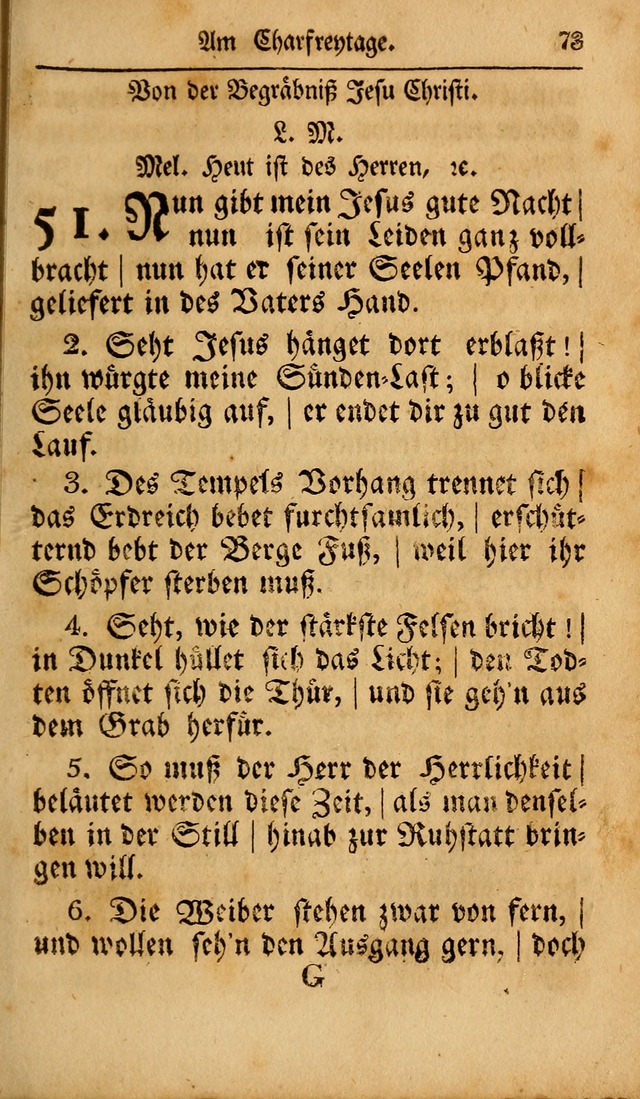 Am Charfreytage. 73
Von der Begräbniß Jesu Christi.
L. M.
Mel. Heut ist des Herren, ꝛc.
51. Nun gibt mein Jesus gute Nacht |
nun ist sein Leiden ganz voll-
bracht | nun hat er seiner Seelen Pfand, |
geliefert in des Vaters Hand.
2. Seht Jesus hänget dort erblaßt! |
ihn würgte meine Sünden-Last; | o blicke
Seele gläubig auf, | er endet dir zu gut den
Lauf.
3. Des Tempels Vorhang trennet sich |
das Erdreich bebet furchtsamlich, | erschüt-
ternd bebt der Berge Fuß, | weil hier ihr
Schöpfer sterben muß.
4. Seht, wie der stärkste Felsen bricht! |
in Dunkel hüllet sich das Licht; | den Tod-
ten öffnet sich die Thür, | und sie geh'n aus
dem Grab herfür.
5. So muß der Herr der Herrlichkeit |
beläutet werden diese Zeit, | als man densel-
ben in der Still | hinab zur Ruhstatt brin-
gen will.
6. Die Weiber stehen zwar von fern, |
und wollen seh'n den Ausgang gern, | doch
G